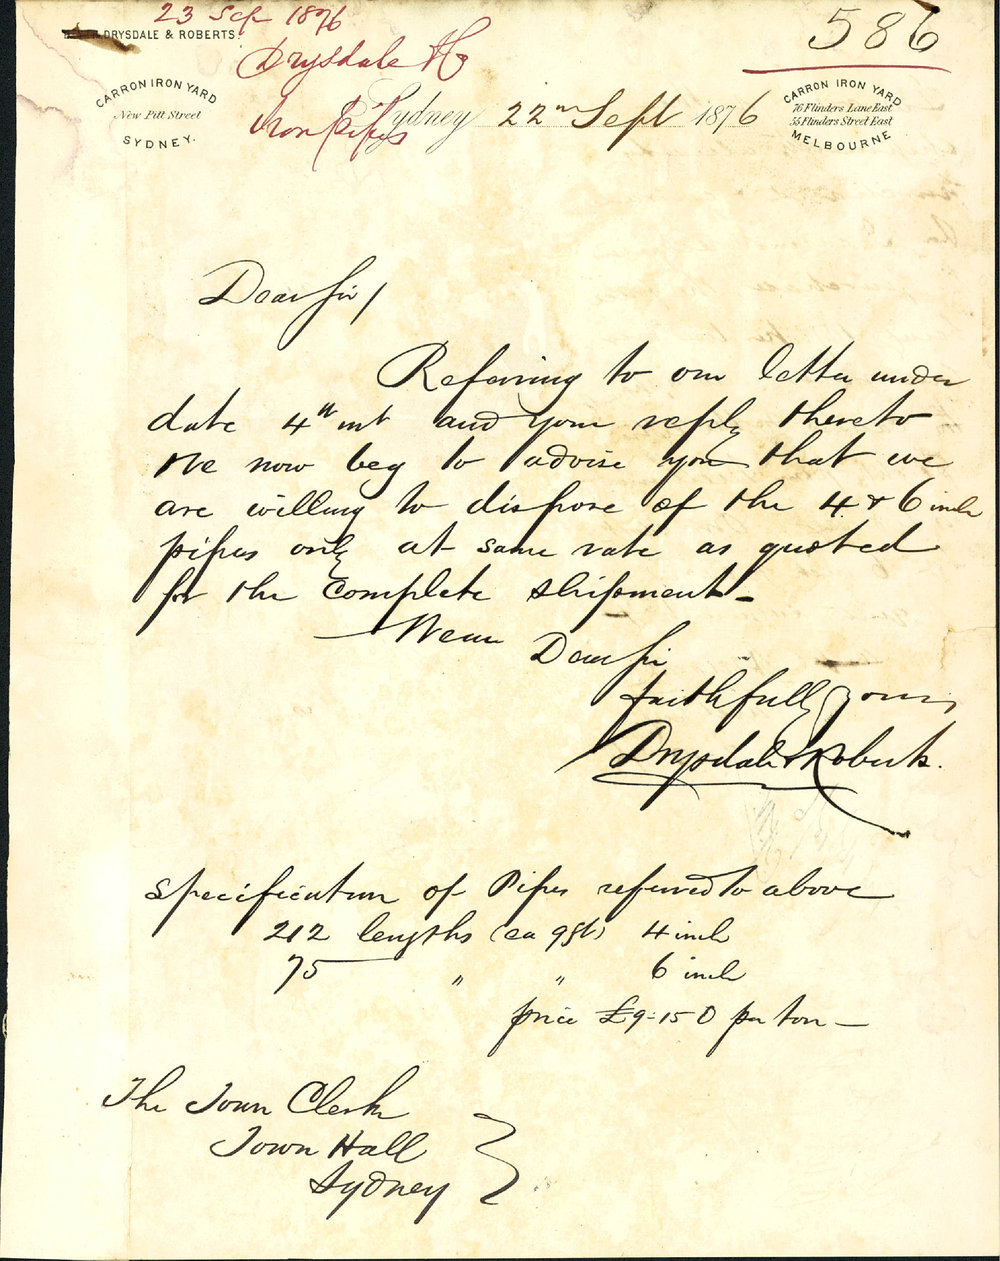 23 Sep 1876
586
DRYSDALE & ROBERTS.
Drysdale &c
Iron Pipes
CARRON IRON YARD
New Pitt Street
SYDNEY.
Sydney 22nd Sept 1876
CARRON IRON YARD
76 Flinders Lane East
55 Flinders Street East
MELBOURNE
Dear Sir/
Referring to our letter under
date 4th inst and your reply thereto
We now beg to advise you that we
are willing to dispose of the 4 & 6 inch
pipes only at same rate as quoted
for the Complete shipment -
We are Dear Sir
faithfully yours
Drysdale & Roberts.
Specification of Pipes referred to above
212 lengths (ea 9ft) 4 inch
75 " " 6 inch
price £9-15 0 per ton -
The Town Clerk
Town Hall
Sydney